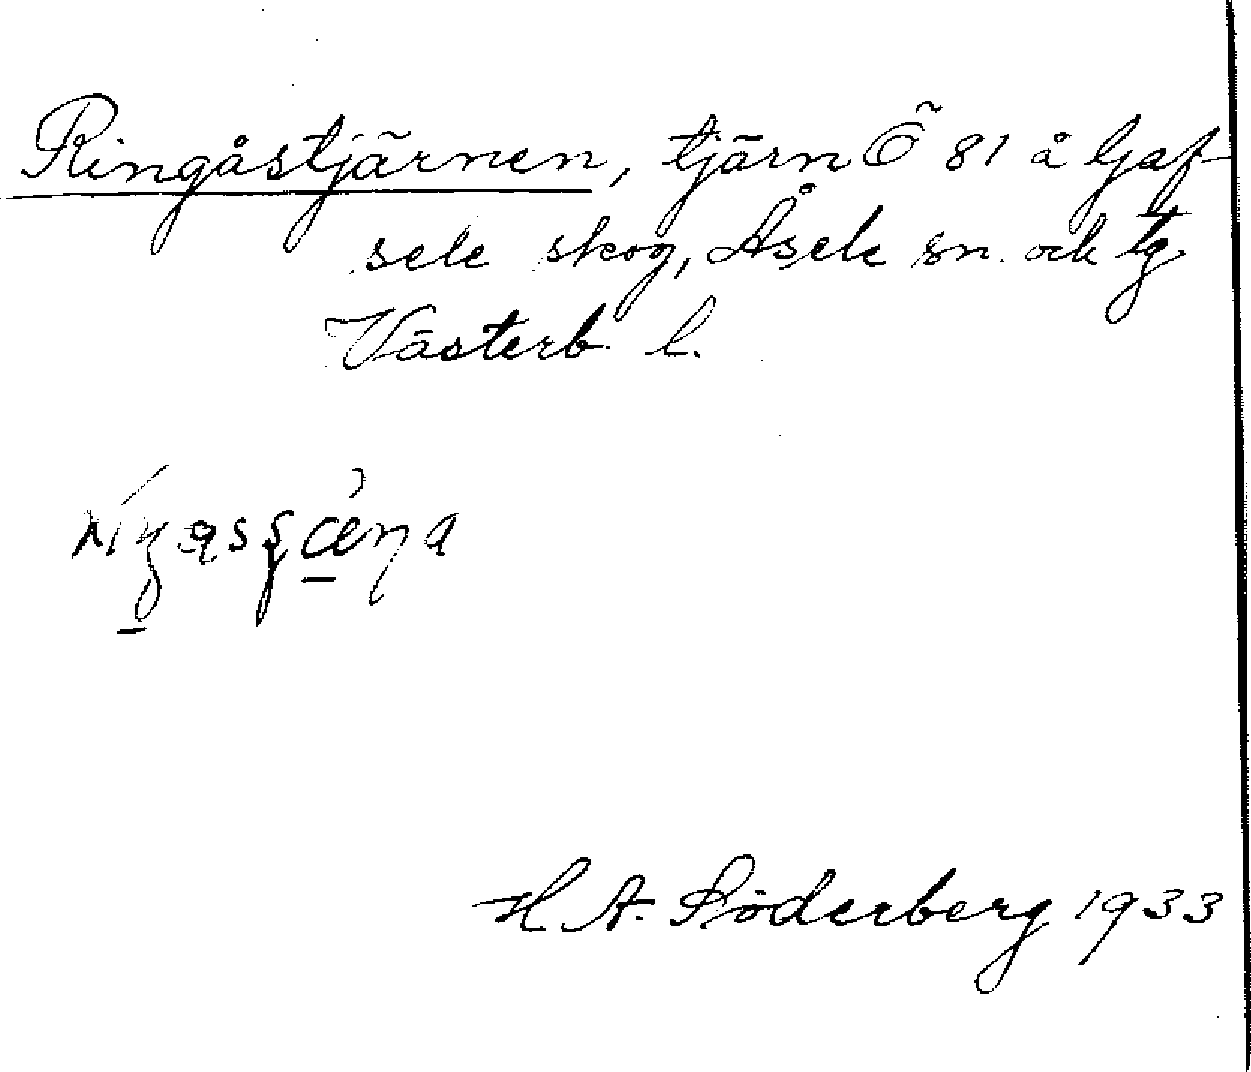 Ringåstjärnen, tjärn Ö 81 å Gaf-
sele skog, Åsele sn. och tg
Västerb. l.
H. A. Söderberg 1933